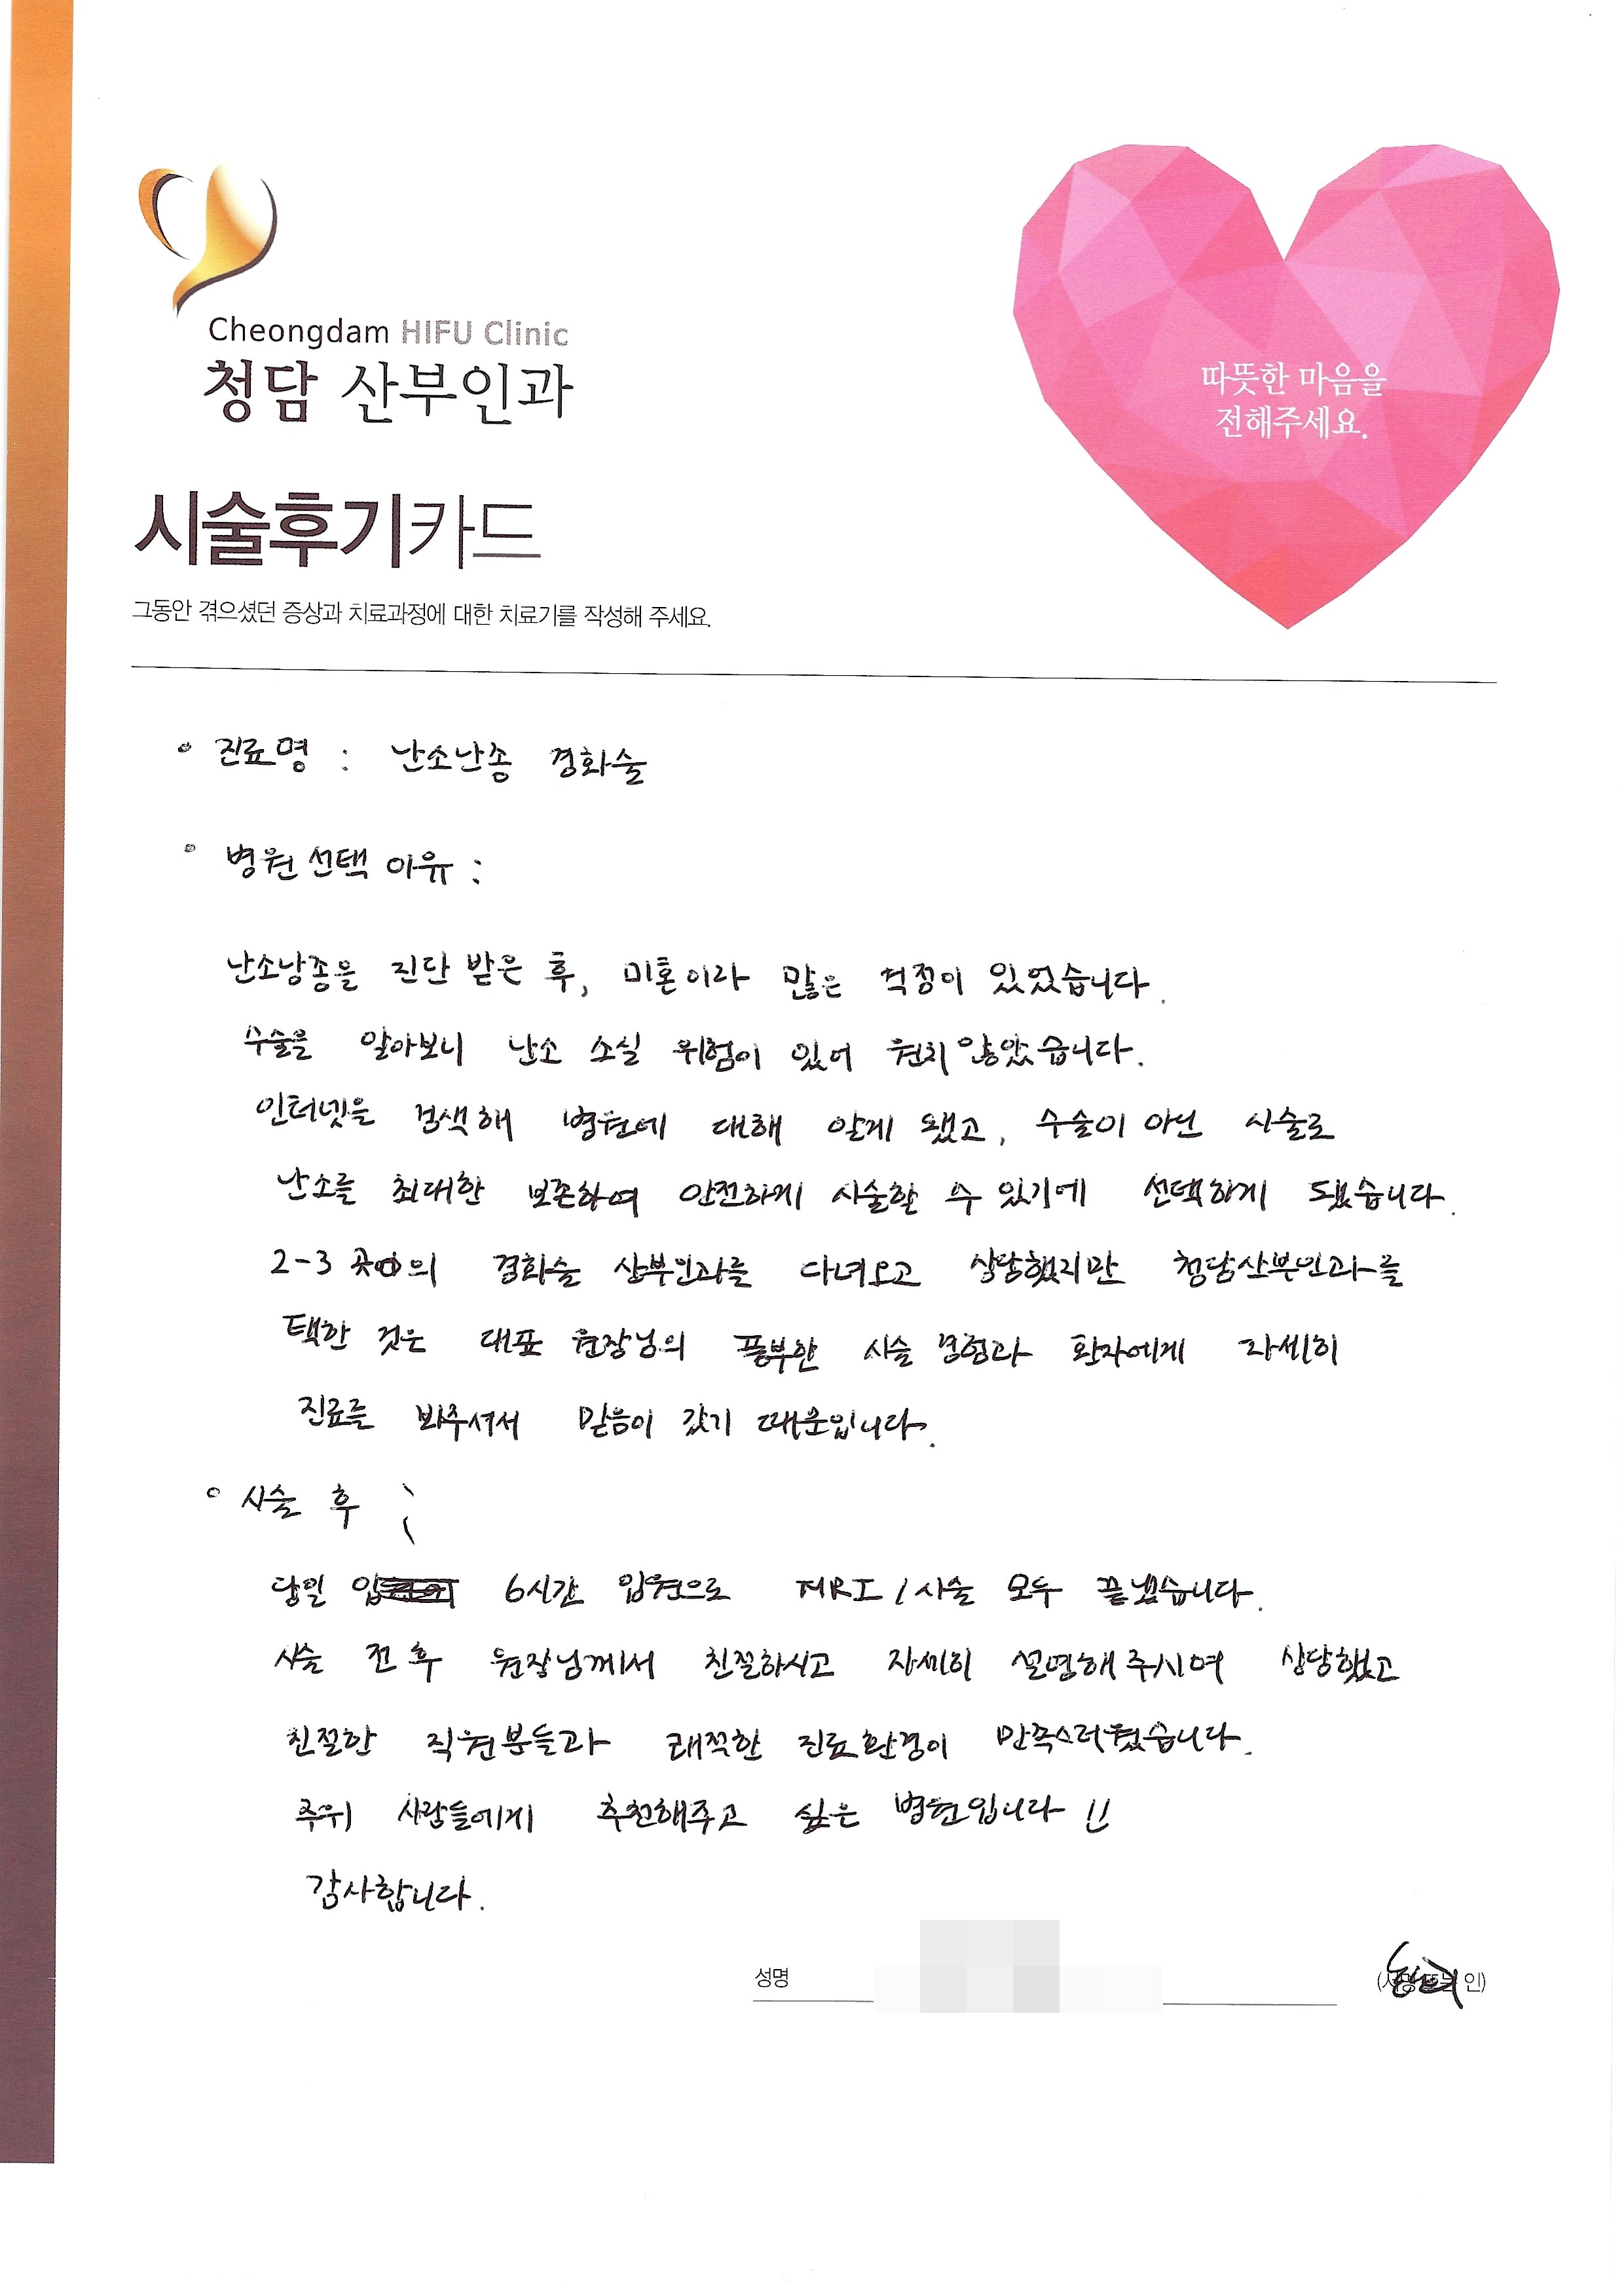 Cheongdam HIFU Clinic
청담 산부인과
따뜻한 마음을
전해주세요.
시술후기카드
그동안 겪으셨던 증상과 치료과정에 대한 치료기를 작성해 주세요.
진료명 : 난소난종 경화술
병원 선택 이유 :
난소낭종을 진단 받은 후, 미혼이라 많은 걱정이 있었습니다.
수술을 알아보니 난소 소실 위험이 있어 원치 않았습니다.
인터넷을 검색해 병원에 대해 알게 됐고, 수술이 아닌 시술로
난소를 최대한 보존하여 안전하게 시술할 수 있기에 선택하게 됐습니다.
2-3 곳의 경화술 산부인과를 다녀오고 상담했지만 청담산부인과를
택한 것은 대표 원장님의 풍부한 시술 경험과 환자에게 자세히
진료를 봐주셔서 믿음이 갔기 때문입니다.
시술 후 :
당일 입 6시간 입원으로 MRI / 시술 모두 끝냈습니다.
시술 전 후 원장님께서 친절하시고 자세히 설명해 주시며 상담했고
친절한 직원분들과 쾌적한 진료환경이 만족스러웠습니다.
주위 사람들에게 추천해주고 싶은 병원입니다 !!
감사합니다.
성명 인)